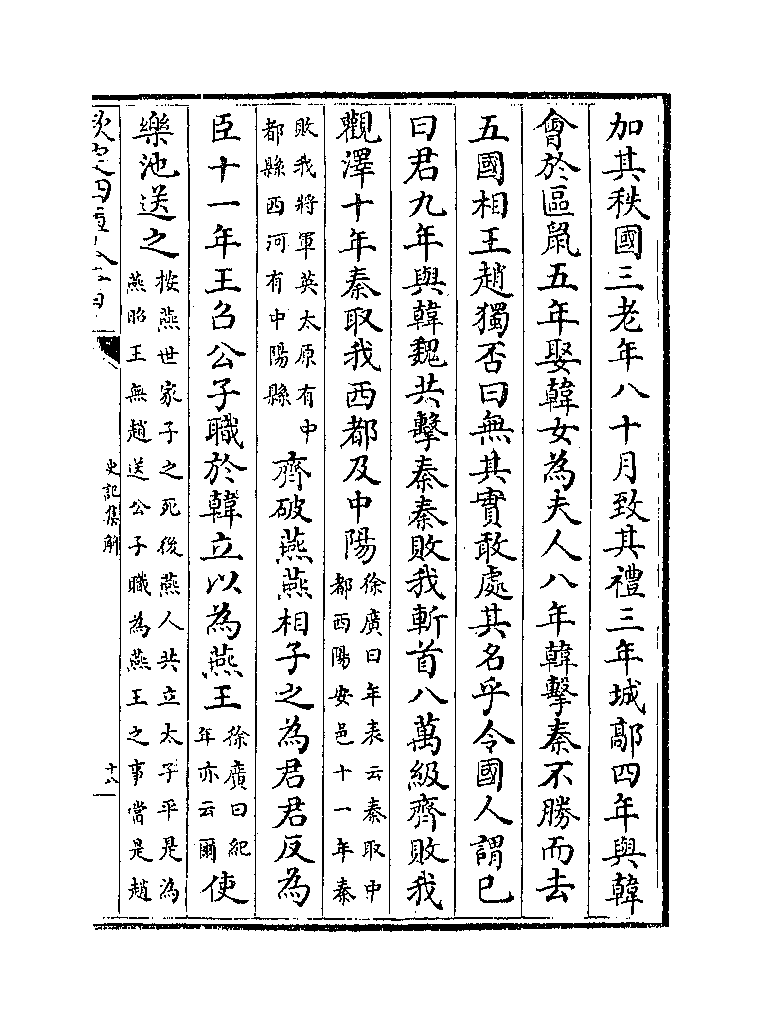 加其秩國三老年八十月致其禮三年城鄗四年與韓
會於區鼠五年娶韓女為夫人八年韓擊秦不勝而去
五國相王趙獨否曰無其實敢處其名乎令國人謂已
曰君九年與韓魏共擊秦秦敗我斬首八萬級齊敗我
觀澤十年秦取我西都及中陽徐廣曰年表云秦取中都西陽安邑十一年秦
敗我將軍英太原有中都縣西河有中陽縣齊破燕燕相子之為君君反為
臣十一年王召公子職於韓立以為燕王徐廣曰紀年亦云爾使
樂池送之按燕世家子之死後燕人共立太子平是為燕昭王無趙送公子職為燕王之事當是趙
欽定四庫全書
史記集解
十八